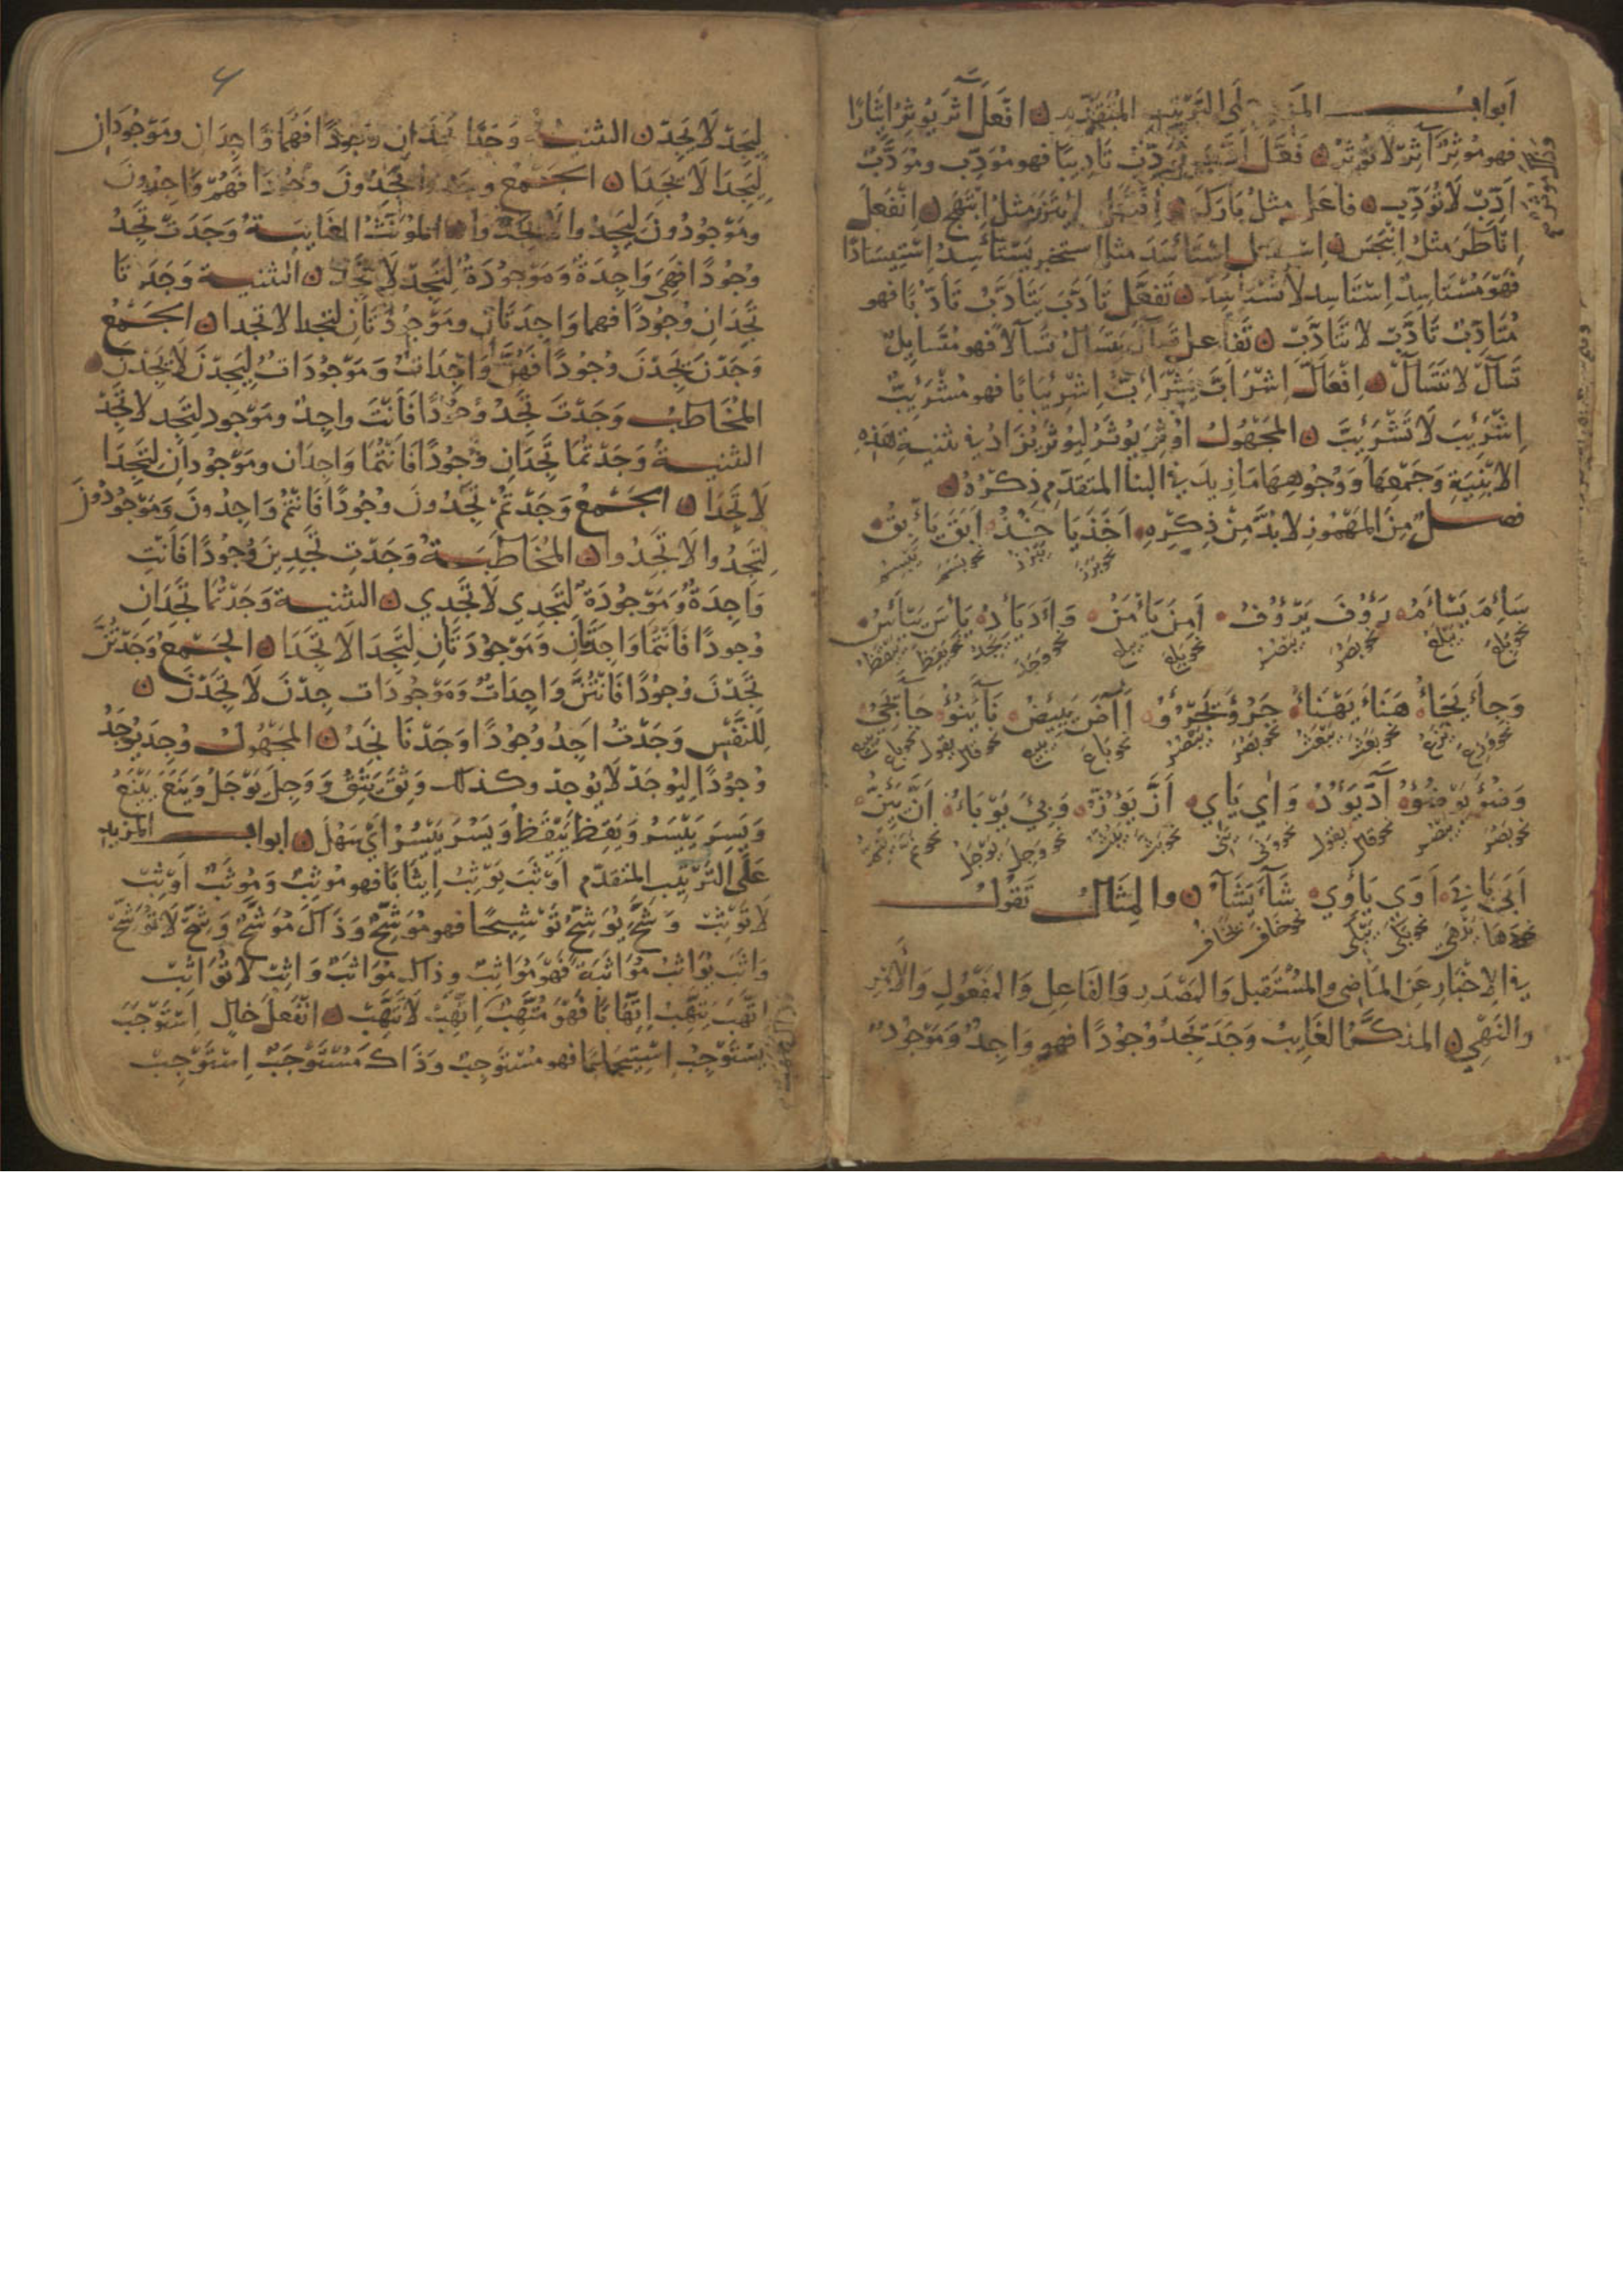 أبواب المزيد على الترتيب المتقدم ۞ افعل آثَرَ يُوثِرُ إيثارًا
فهو مُوثِرٌ آثِرْ لا تُوثِرْ ۞ فَعَّلَ أَدَّبَ يُؤَدِّبُ تَادِيبًا فهو مُوَدِّبٌ ومُوَدَّبٌ
أَدِّبْ لا تُؤَدِّبْ ۞ فاعل مثل بارك ۞ افتعل ايتزر مثل ابتهج ۞ انفعل
اناطر مثل انبجس ۞ استفعل استأسد مثل استخبر يستأسد استيسادًا
فهو مستاسد استاسد لا تستاسد ۞ تفعّل تَأَدَّبَ يَتَأَدَّبُ تَأَدُّبًا فهو
مُتَأَدِّبٌ تَأَدَّبْ لا تَتَأَدَّبْ ۞ تفاعل تسآل يتسآل تسآلا فهو متسايل
تسآل لا تتسآل ۞ افعالّ اشرابّ يشرابّ اشريبابا فهو مشرئبّ
اشرئب لا تشرئب ۞ المجهول اوثر يوثر ليوثر يزاد في تثنية هذه
الابنية وجمعها ووجوهها ما زيد في البنا المتقدم ذكره ۞
فصل من المهموز لا بد من ذكره اخذ ياخذ ابق يأبق
سَائِمَ يَسْأَمُ رَؤُفَ يَرْؤُفُ أَمِنَ يَأْمَنُ وَأَدَ يَأَدُ يَأَسَ يَيْأَسُ
وَجَأَ يَجَأُ هَنَأَ يَهْنَأُ جَرُؤَ يَجْرُؤُ آضَ يَئِيضُ نَآءَ يَنُوءُ جَآءَ يَجِيءُ
وَضُؤَ يَوْضُؤُ آدَ يَؤُدُ وَاي يَاي أَزَّ يَؤُزُّ وَبِئَ يَوْبَأُ أَنَّ يَئِنُّ
أَبَى يَابَى أَوَى يَأْوِي شَآءَ يَشَآءُ ۞ والمثال تقول
في الاخبار عن الماضي والمستقبل والمصدر والفاعل والمفعول والامر
والنهي ۞ المذكر الغايب وَجَدَ يَجِدُ وُجُودًا فهو وَاجِدٌ وَمَوْجُودٌ
لِيَجِدْ لَا يَجِدْ ۞ التثنية وَجَدَا يَجِدَانِ وُجُودًا فَهُمَا وَاجِدَانِ ومَوْجُودَانِ
لِيَجِدَا لَا يَجِدَا ۞ الجمع وجدوا يَجِدُونَ وجُودًا فَهُمْ وَاجِدُونَ
ومَوْجُودُونَ لِيَجِدُوا لَا يَجِدُوا ۞ المؤنث الغايبة وَجَدَتْ تَجِدُ
وُجُودًا فَهِيَ وَاجِدَةٌ وَمَوْجُودَةٌ لِتَجِدْ لَا تَجِدْ ۞ التثنية وَجَدَتَا
تَجِدَانِ وُجُودًا فهما وَاجِدَتَانِ ومَوْجُودَتَانِ لتجدا لا تجدا ۞ الجمع
وَجَدْنَ يَجِدْنَ وُجُودًا فَهُنَّ وَاجِدَاتٌ وَمَوْجُودَاتٌ لِيَجِدْنَ لَا يَجِدْنَ ۞
المُخَاطَب وَجَدْتَ تَجِدُ وُجُودًا فَأَنْتَ واجِدٌ ومَوْجودٌ لِتَجِد لا تَجِدْ
التثنية وَجَدْتُمَا تَجِدَانِ وُجُودًا فَأَنْتُمَا وَاجِدَانِ ومَوْجُودانِ لِتَجِدَا
لَا تَجِدَا ۞ الجمع وَجَدْتُمْ تَجِدُونَ وُجُودًا فَأَنْتُمْ وَاجِدُونَ وَمَوْجُودُونَ
لِتَجِدُوا لا تَجِدُوا ۞ المُخَاطَبَةُ وَجَدْتِ تَجِدِينَ وُجُودًا فَأَنْتِ
وَاجِدَةٌ وَمَوْجُودَةٌ لِتَجِدِي لَا تَجِدِي ۞ التثنية وَجَدْتُمَا تَجِدَانِ
وُجودًا فَأَنْتُمَا وَاجِدَتَانِ وَمَوْجُودَتَانِ لِتَجِدَا لا تَجِدَا ۞ الجمع وَجَدْتُنَّ
تَجِدْنَ وُجُودًا فَأَنْتُنَّ وَاجِدَاتٌ وَمَوْجُودَات جِدْنَ لَا تَجِدْنَ ۞
لِلنَّفْسِ وَجَدْتُ أَجِدُ وُجُودًا وَجَدْنَا نَجِدُ ۞ المجهول وُجِدَ يُوجَدُ
وُجُودًا لِيُوجَدْ لَا يُوجَدْ وكذلك وَثِقَ يَثِقُ وَوَجِلَ يَوْجَلُ وَيَنَعَ يَيْنَعُ
وَيَسِرَ يَيْسَرُ وَيَقِظَ يَيْقَظُ وَيَسُرَ يَيْسُرُ أي سَهُلَ ۞ ابواب المزيد
عَلَى التَّرْتِيبِ المتقدّم أَوْثَبَ يُوثِبُ إيثَابًا فهو مُوثِبٌ وَمُوثَبٌ أَوْثِبْ
لَا تُوثِبْ وَشَّحَ يُوَشِّحُ تَوْشِيحًا فهو مُوَشِّحٌ وَذَاكَ مُوَشَّحٌ وَشِّحْ لَا تُوَشِّحْ
وَاثَبَ يُوَاثِبُ مُوَاثَبَةً فَهُوَ مُوَاثِبٌ وذاك مُوَاثَبٌ وَاثِبْ لا تُوَاثِبْ
اتَّهَبَ يَتَّهِبُ اتِّهَابًا فَهُوَ مُتَّهِبٌ اتَّهِبْ لَا تَتَّهِبْ ۞ انْفَعَلَ خالٍ اسْتَوْجَبَ
يَسْتَوْجِبُ اسْتِيجَابًا فهو مُسْتَوْجِبٌ وَذَاكَ مُسْتَوْجَبٌ اسْتَوْجِبْ